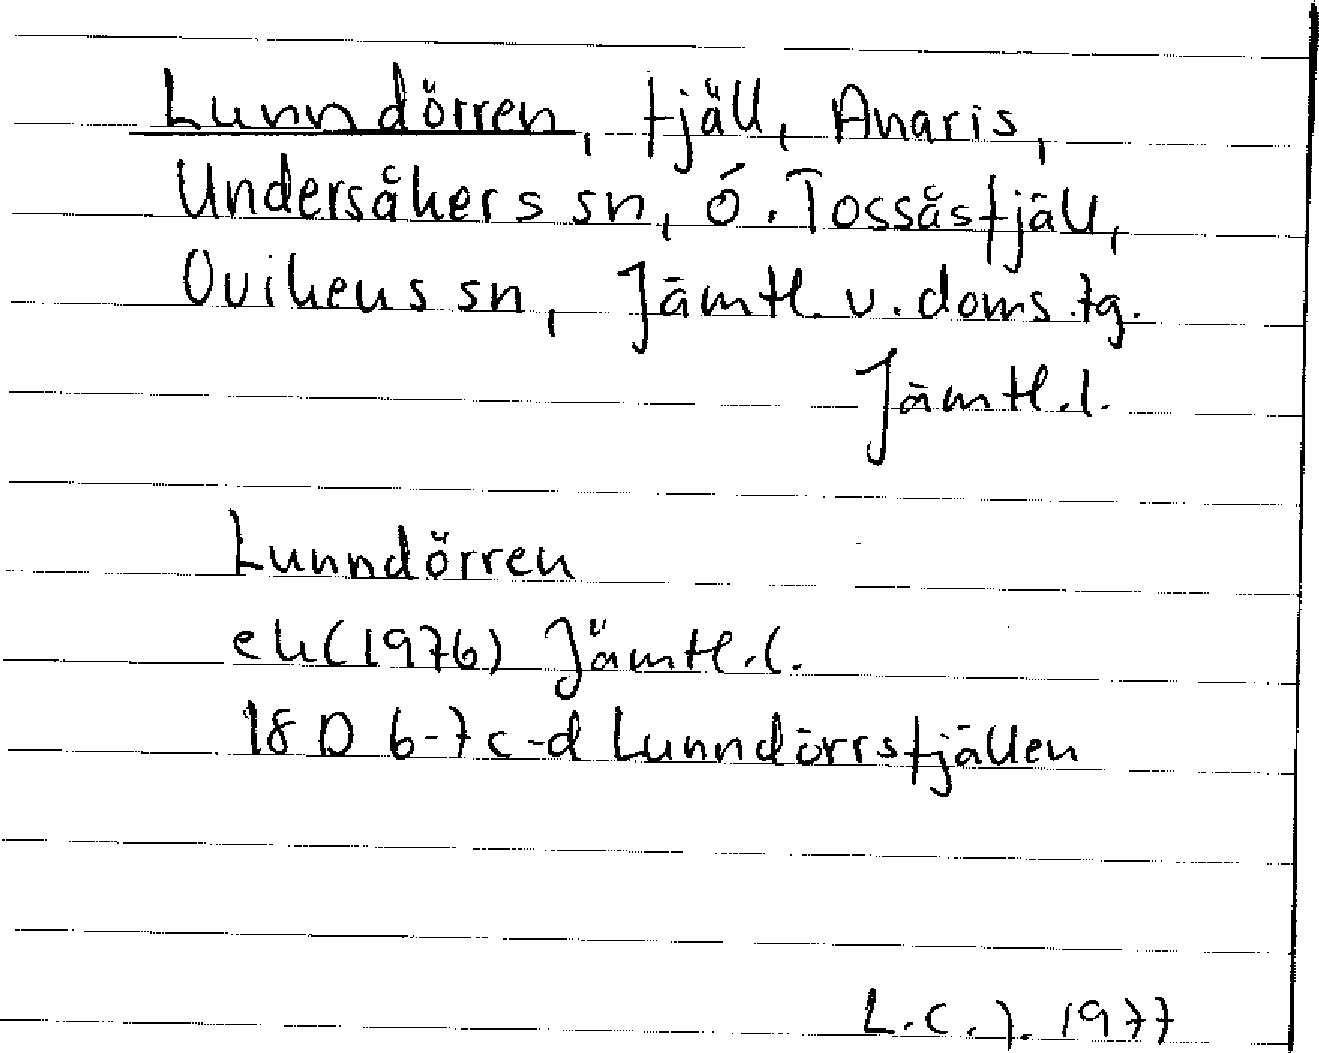 Lunndörren, fjäll, Anaris,
Undersåkers sn, ö. Tossåsfjäll,
Ovikens sn, Jämtl. v. doms.tg.
Jämtl.l.
Lunndörren
ek(1976) Jämtl.l.
18 D 6-7c-d Lunndörrsfjällen
L.C.J. 1977